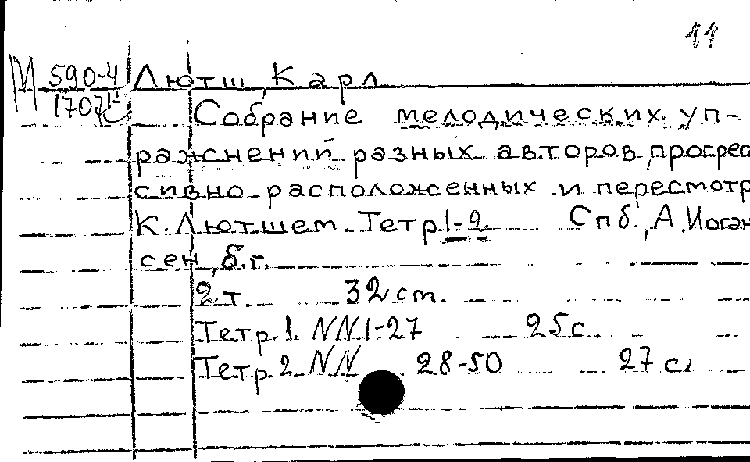 11
М 590-4 Лютш, Карл
1707
Собрание мелодических уп-
ражнений разных авторов, прогрес
сивно расположенных и пересмотр
К. Лютшем. Тетр. 1-2. Спб., А. Иоган
сен, б.г.
2 т. 32 cm.
Тетр. 1. NN 1-27 25 с.
Тетр. 2. NN 28-50 27 с.